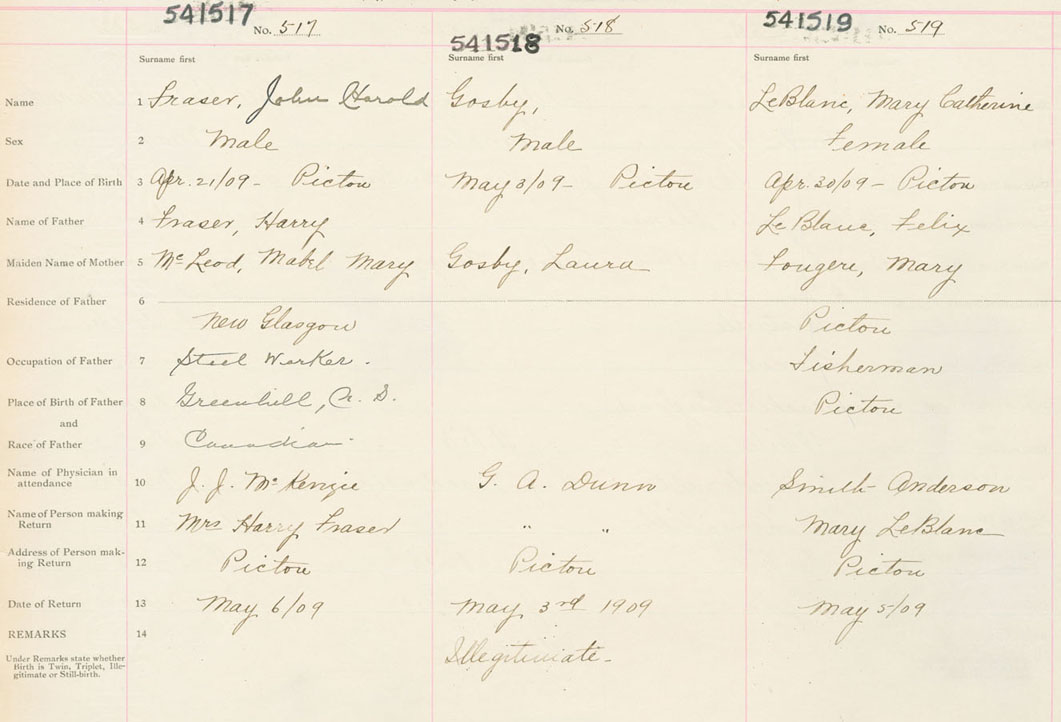 541517 No. 517
541518 No. 518
541519 No. 519
Surname first Surname first Surname first
Name 1 Fraser, John Harold Gosby, LeBlanc, Mary Catherine
Sex 2 Male Male Female
Date and Place of Birth 3 Apr. 21/09 - Pictou May 3/09 - Pictou Apr. 30/09 - Pictou
Name of Father 4 Fraser, Harry LeBlanc, Felix
Maiden Name of Mother 5 McLeod, Mabel Mary Gosby, Laura Fougere, Mary
Residence of Father 6
New Glasgow Pictou
Occupation of Father 7 Steel Worker. Fisherman
Place of Birth of Father 8 Greenhill, Pictou
and
Race of Father 9 Canadian
Name of Physician in
attendance 10 J. J. McKenzie G. A. Dunn Smith Anderson
Name of Person making
Return 11 Mrs Harry Fraser " " Mary LeBlanc
Address of Person mak-
ing Return 12 Pictou Pictou Pictou
Date of Return 13 May 6/09 May 3rd 1909 May 5/09
REMARKS 14
Under Remarks state whether
Birth is Twin, Triplet, Ille-
gitimate or Still-birth.
Illegitimate -